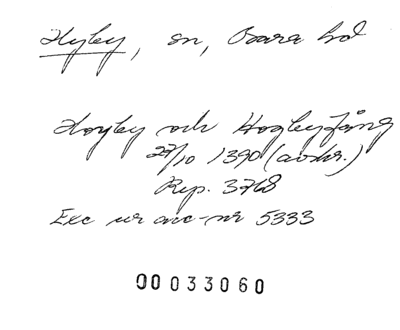 Hyby, sn, Bara hd
Hoghby och Hoghbyfång
27/10 1390 (avskr.)
Rep. 3768
Exc ur acc-nr 5333
00033060